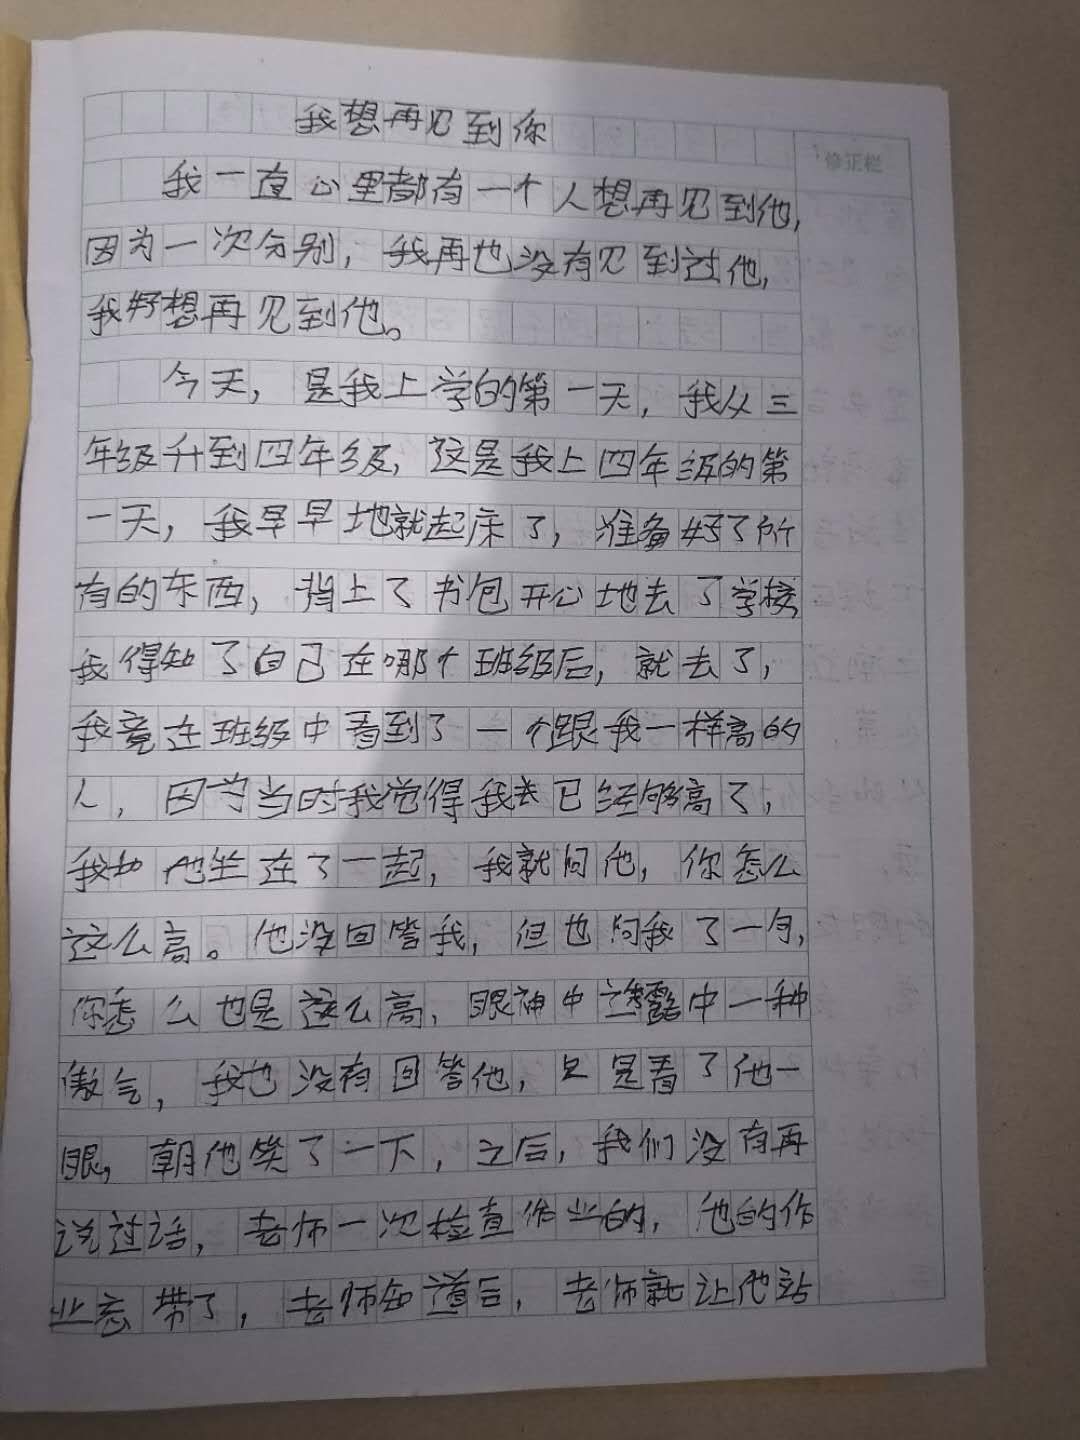 我想再见到你
修正栏
我一直心里都有一个人想再见到他，
因为一次分别，我再也没有见到过他，
我好想再见到他。
今天，是我上学的第一天，我从三
年级升到四年级，这是我上四年级的第
一天，我早早地就起床了，准备好了所
有的东西，背上了书包开心地去了学校
我得知了自己在哪个班级后，就去了，
我竟在班级中看到了一个跟我一样高的
人，因为当时我觉得我长已经够高了，
我和他坐在了一起，我就问他，你怎么
这么高。他没回答我，但也问我了一句，
你怎么也是这么高，眼神中透露中一种
傲气，我也没有回答他，只是看了他一
眼，朝他笑了一下，之后，我们没有再
说过话，老师一次检查作业的，他的作
业忘带了，老师知道后，老师就让他站